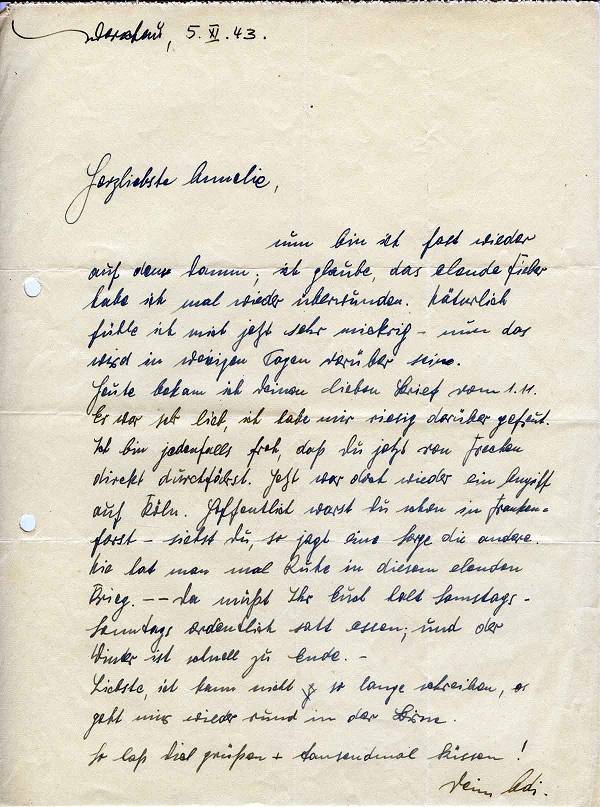 Warschau, 5. XI. 43.
Herzliebste Annelie,
nun bin ich fast wieder
auf dem Damm; ich glaube, das elende Fieber
habe ich mal wieder überwunden. Natürlich
fühle ich mich jetzt sehr mickrig – nun das
wird in wenigen Tagen vorüber sein.
Heute bekam ich Deinen lieben Brief vom 1.11.
Es war sehr lieb, ich habe mir riesig darüber gefreut.
Ich bin jedenfalls froh, daß Du jetzt von Frechen
direkt durchfährst. Jetzt war doch wieder ein Angriff
auf Köln. Hoffentlich warst Du schon in Franken=
forst – siehst Du, so jagt eine Sorge die andere.
Nie hat man mal Ruhe in diesem elenden
Krieg. – – Da müßt Ihr Euch halt Samstags -
Sonntags ordentlich satt essen; und der
Winter ist schnell zu Ende. –
Liebste, ich kann nicht so lange schreiben, es
geht mir wieder rund in der Birne.
So laß Dich grüßen + tausendmal küssen!
Dein Adi.